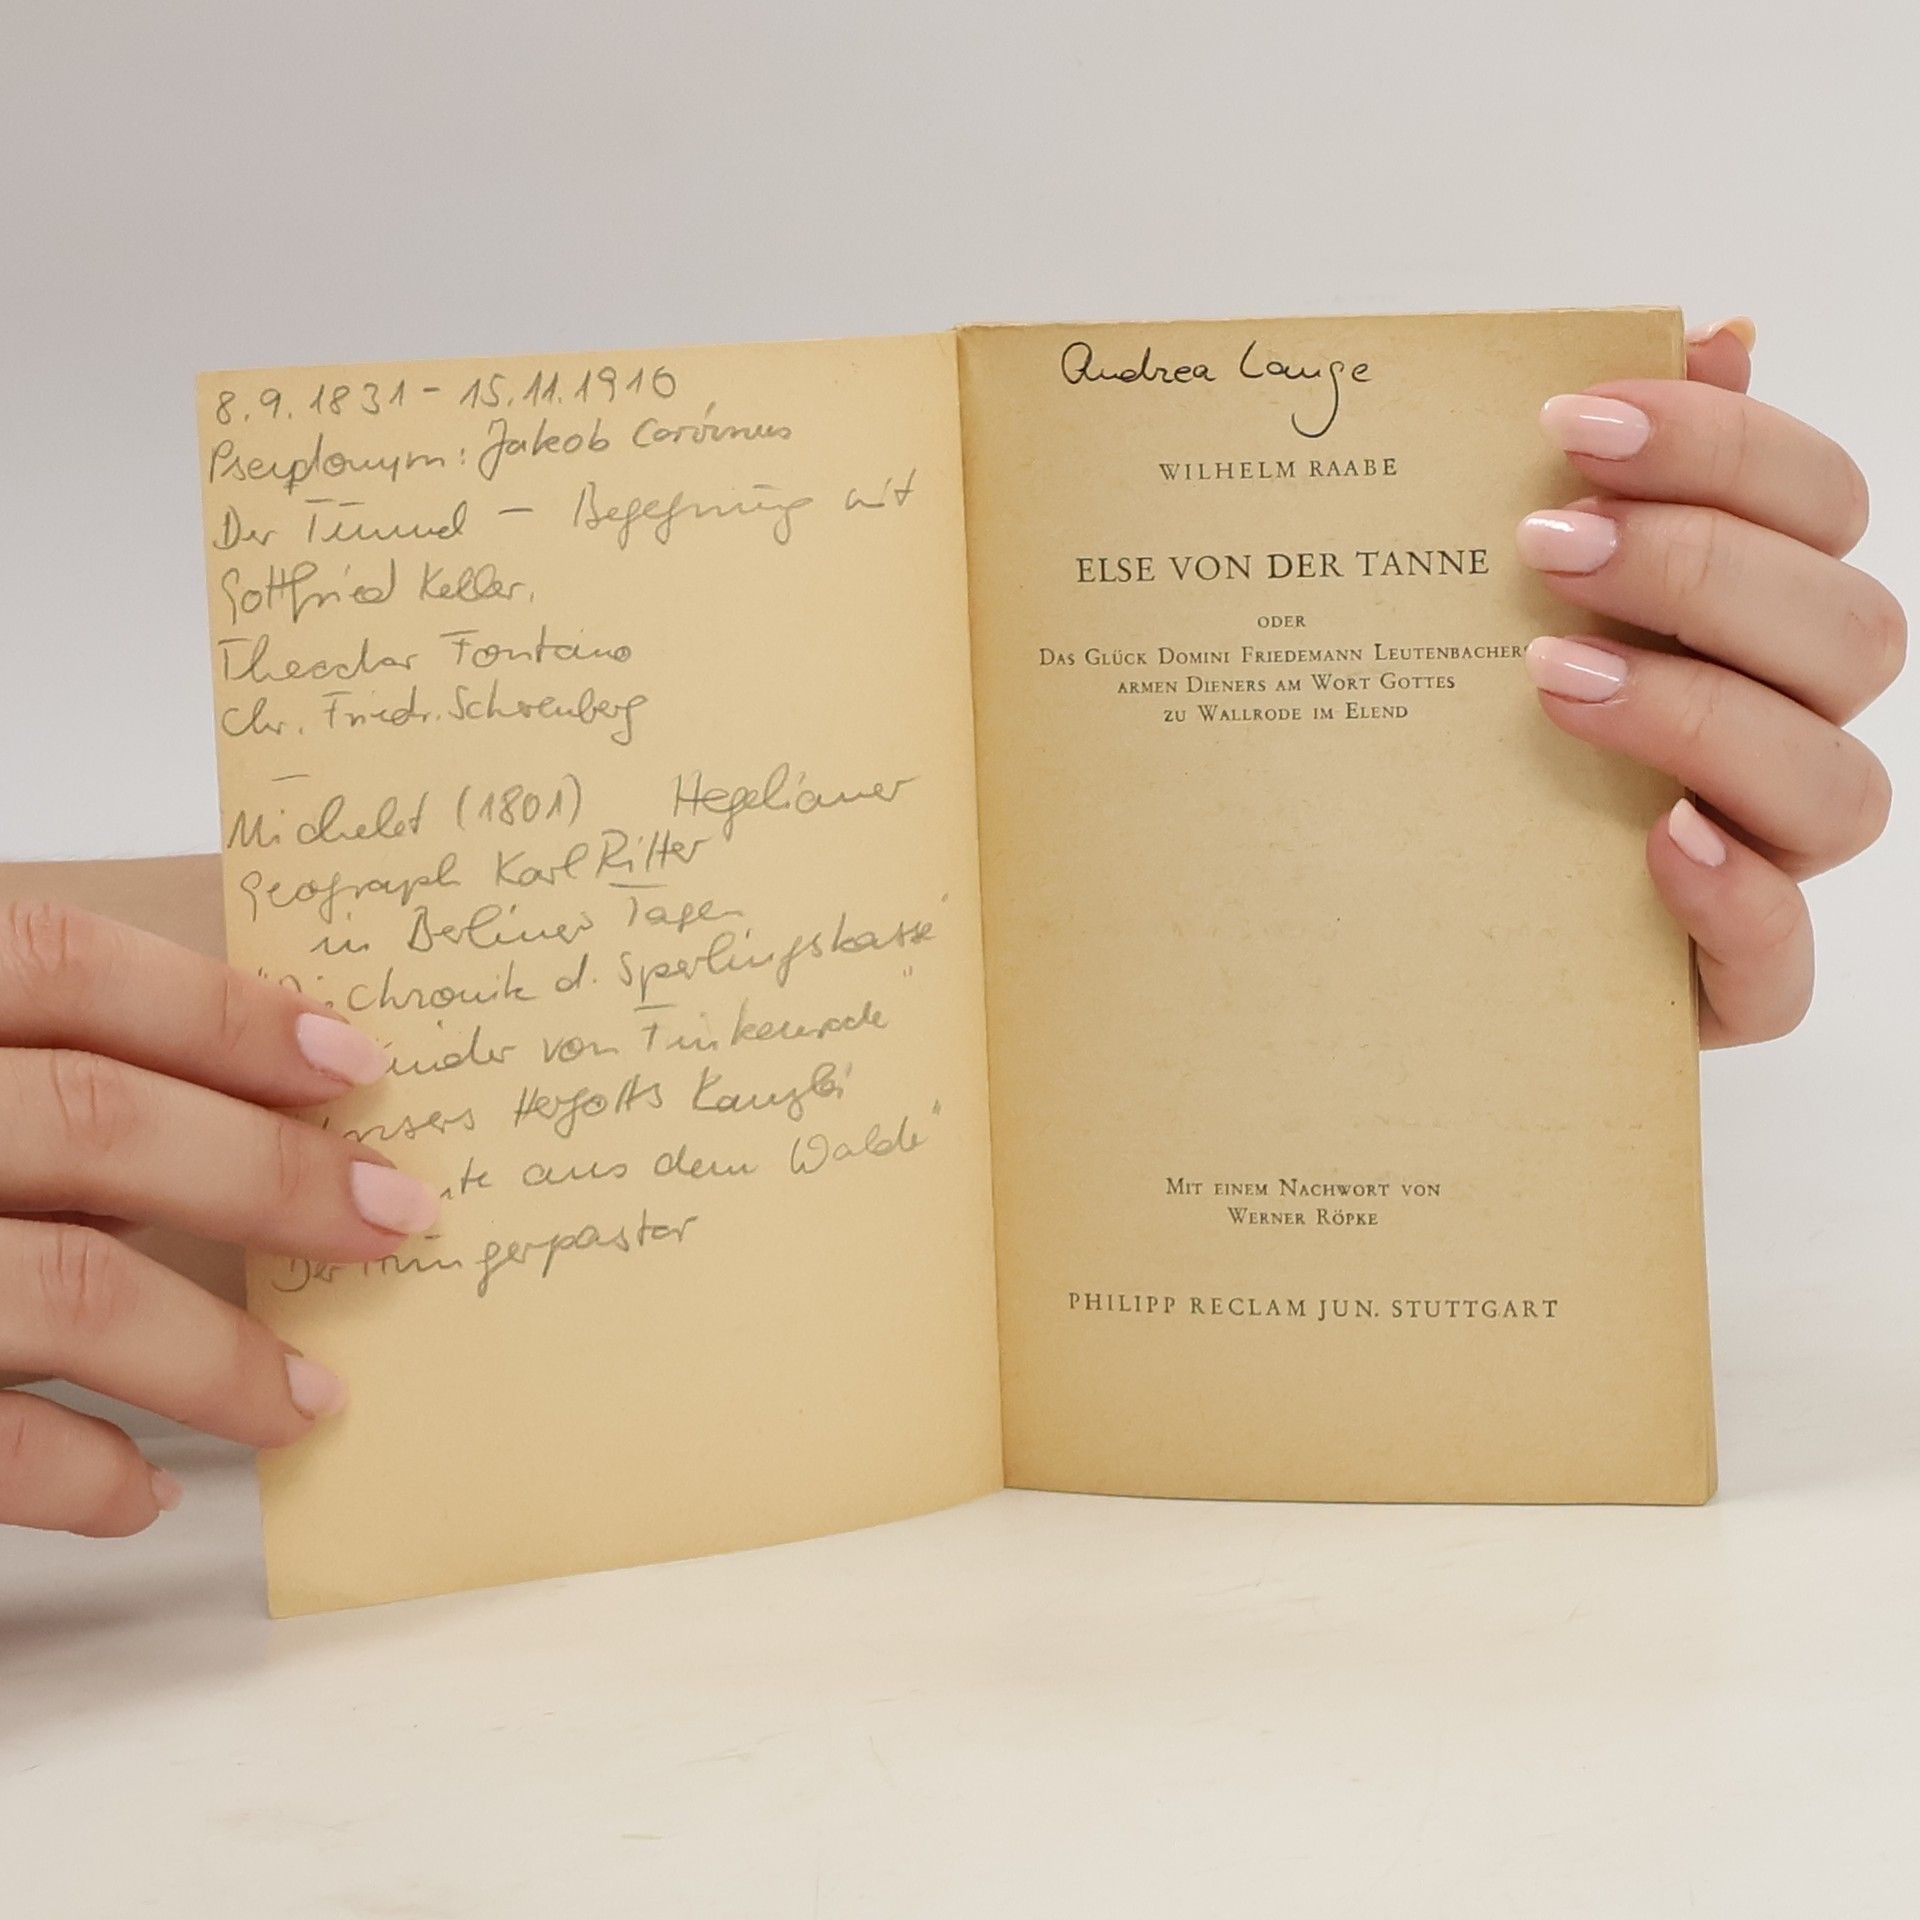 8.9.1831 - 15.11.1910
Pseudonym: Jakob Corvinus
Der Tunnel - Begegnung mit
Gottfried Keller.
Theodor Fontane
Chr. Friedr. Scherenberg
Michelet (1801) Hegelianer
Geograph Karl Ritter
in Berliner Tagen
"Die Chronik d. Sperlingskasse"
Kinder von Finkenrode"
Unsers Hergotts Kanzlei
aus dem Walde"
Der Hungerpastor
Andrea Lange
WILHELM RAABE
ELSE VON DER TANNE
ODER
DAS GLÜCK DOMINI FRIEDEMANN LEUTENBACHERS
ARMEN DIENERS AM WORT GOTTES
ZU WALLRODE IM ELEND
MIT EINEM NACHWORT VON
WERNER RÖPKE
PHILIPP RECLAM JUN. STUTTGART